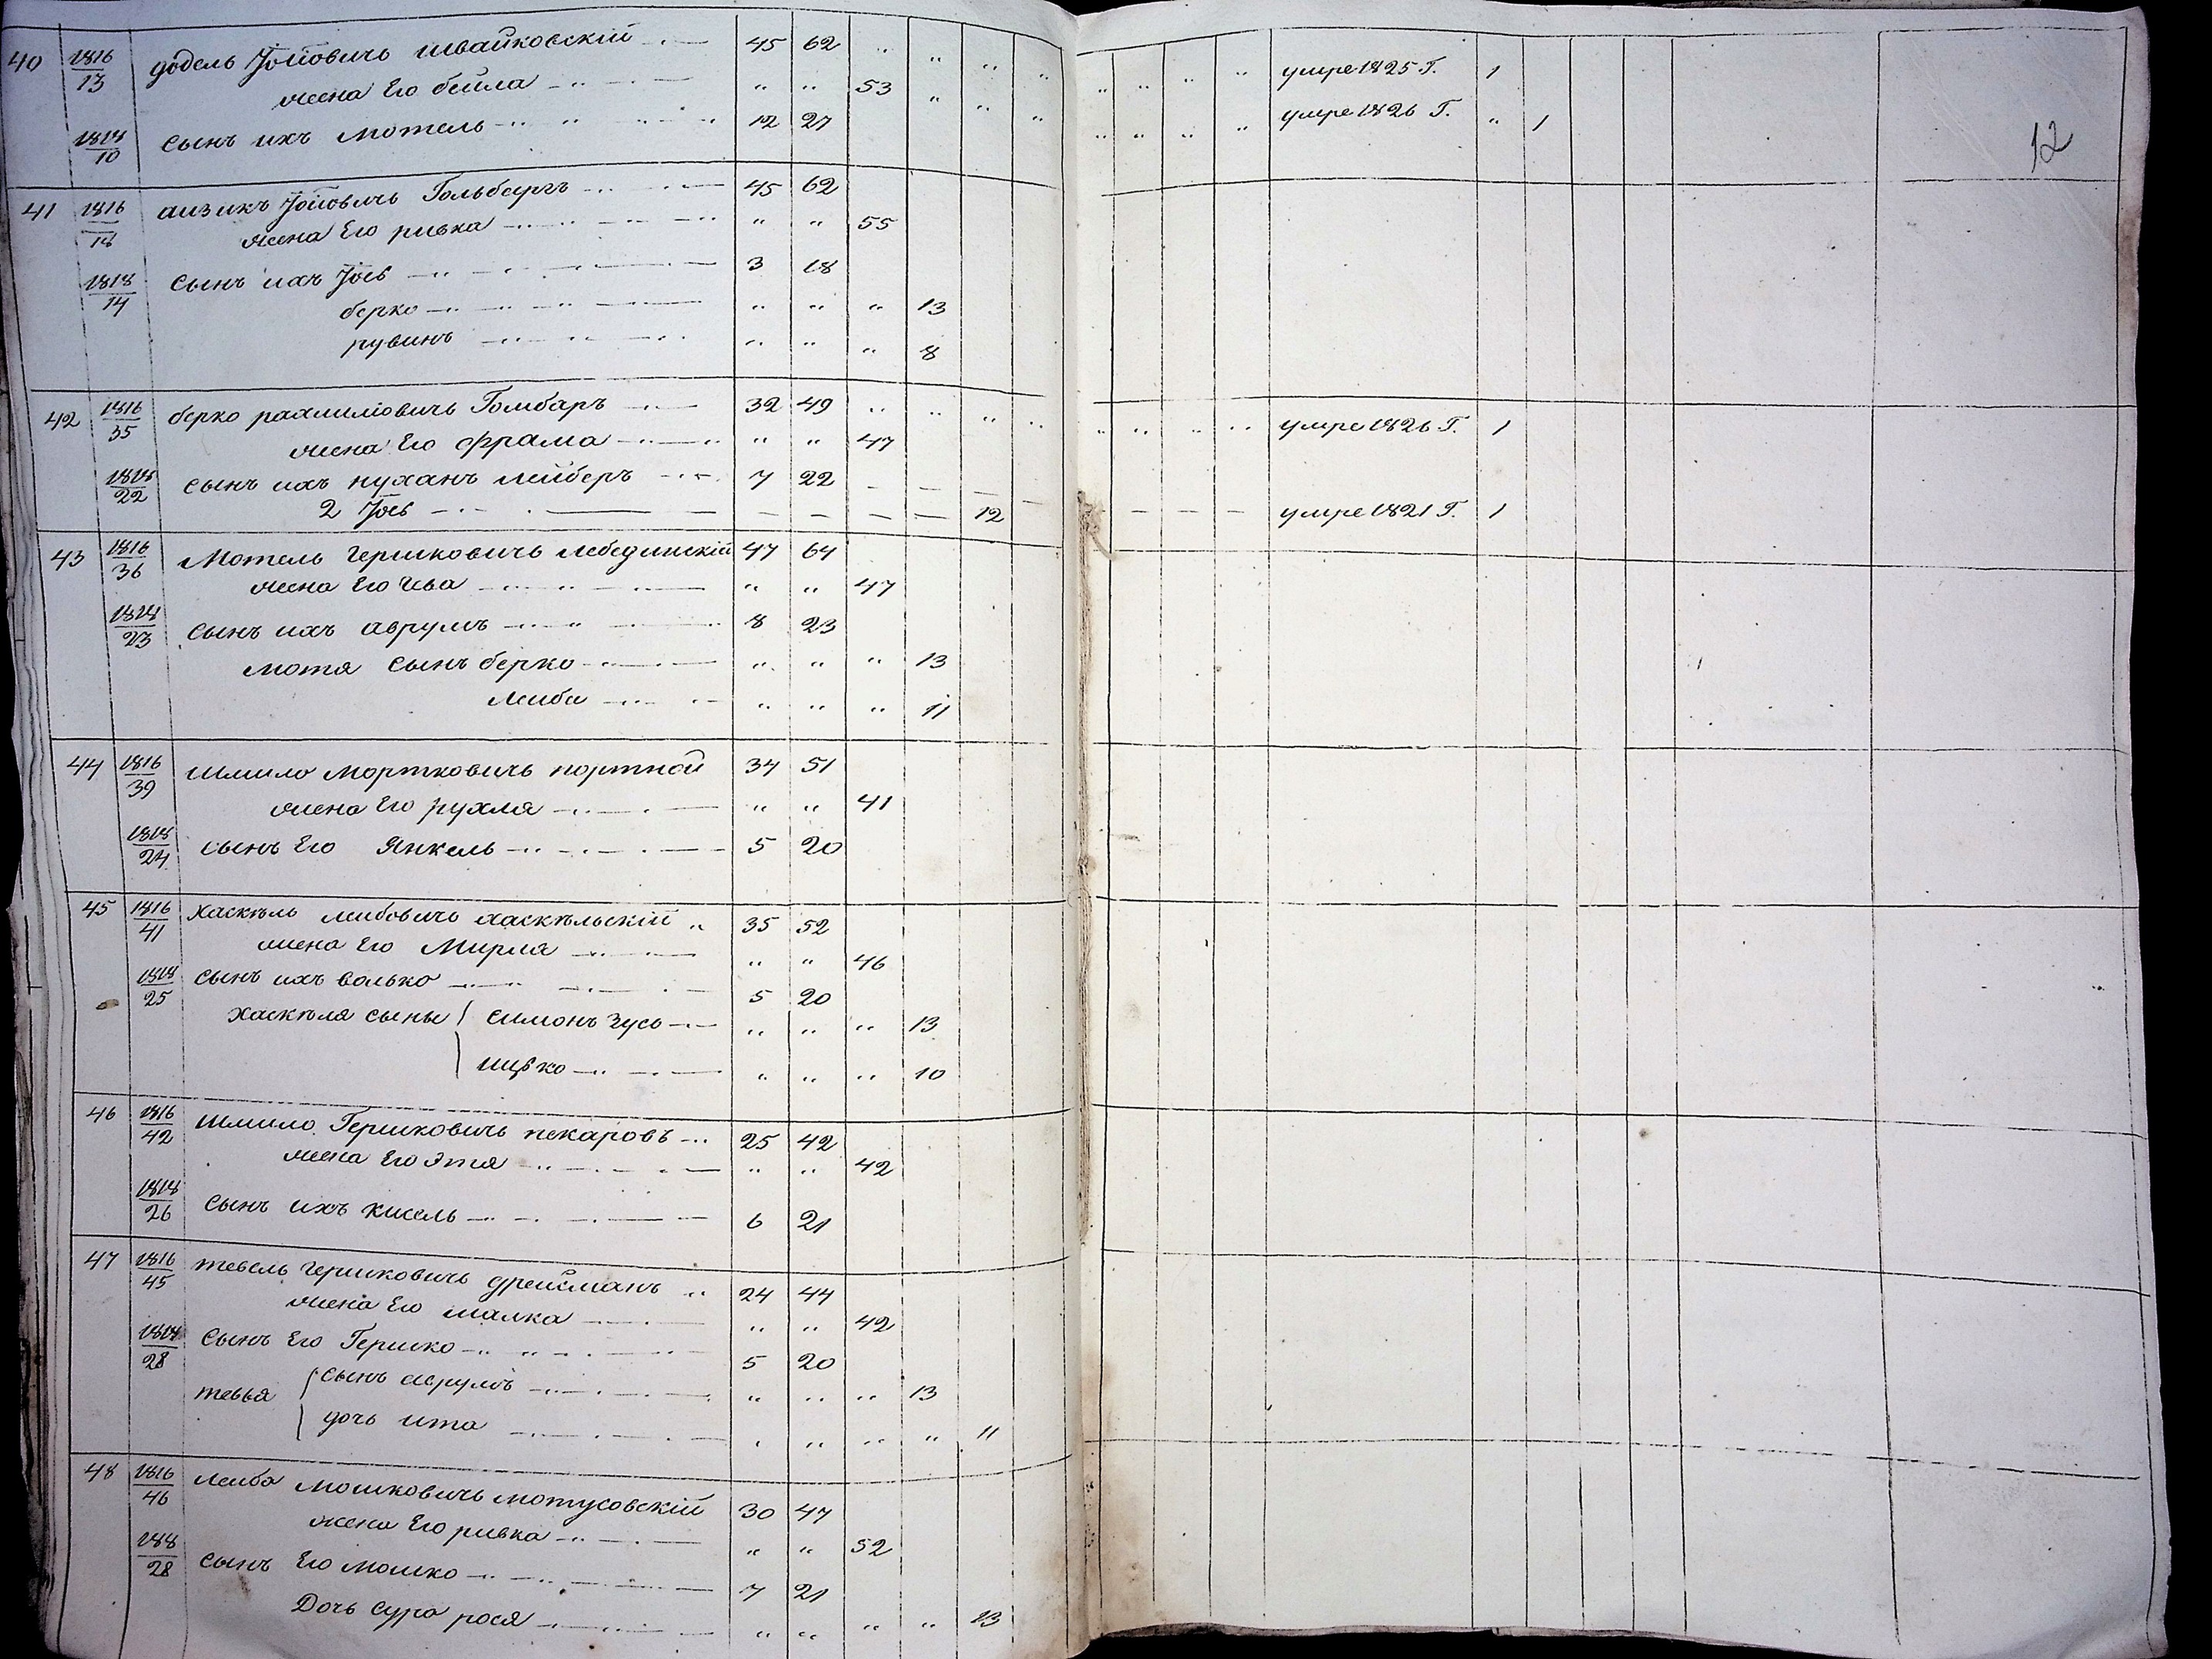 12
40 1816/13 Йодель Іойовичъ Швайковскій 45 62 умре 1825 г. 1
жена Его бейла 53 умре 1826 г. 1
1818/10 сынъ ихъ Мотель 12 27
41 1816/14 аизикъ Іойовичъ Гольбергъ 45 62
жена Его ривка 55
1818/14 сынъ ихъ Іось 3 18
берко 13
рувинъ 8
42 1816/35 берко рахмиліовичъ Гомбаръ 32 49 умре 1826 г. 1
жена Его фрама 47
1818/22 сынъ ихъ нуханъ лейберъ 7 22
2 Іось 12 умре 1821 г. 1
43 1816/36 Мотель гершковичъ лебединскій 47 64
жена Его Чева 47
1818/23 сынъ ихъ аврумъ 8 23
мотя сынъ берко 13
Леиба 11
44 1816/39 Шмило мортковичъ портной 34 51
жена Его рухля 41
1818/24 сынъ Его Янкель 5 20
45 1816/41 Хаскѣль леибовичъ хаскѣльскій 35 52
жена Его Мирля 46
1818/25 сынъ ихъ волько 5 20
Хаскѣля сыны симонъ Зусь 13
ицько 10
46 1816/42 Шмило Гершковичъ пекаровъ 25 42
жена Его Этя 42
1818/26 сынъ ихъ кисель 6 21
47 1816/45 тевель гершковичъ дрейсманъ 24 44
жена Его малка 42
1818/28 сынъ Его Гершко 5 20
тевья сынъ 13
дочь ита 11
48 1816/46 Леиба мошковичъ мотусовскій 30 47
жена Его ривка 52
188/28 сынъ Его мошко 7 21
Дочь сура рося 13